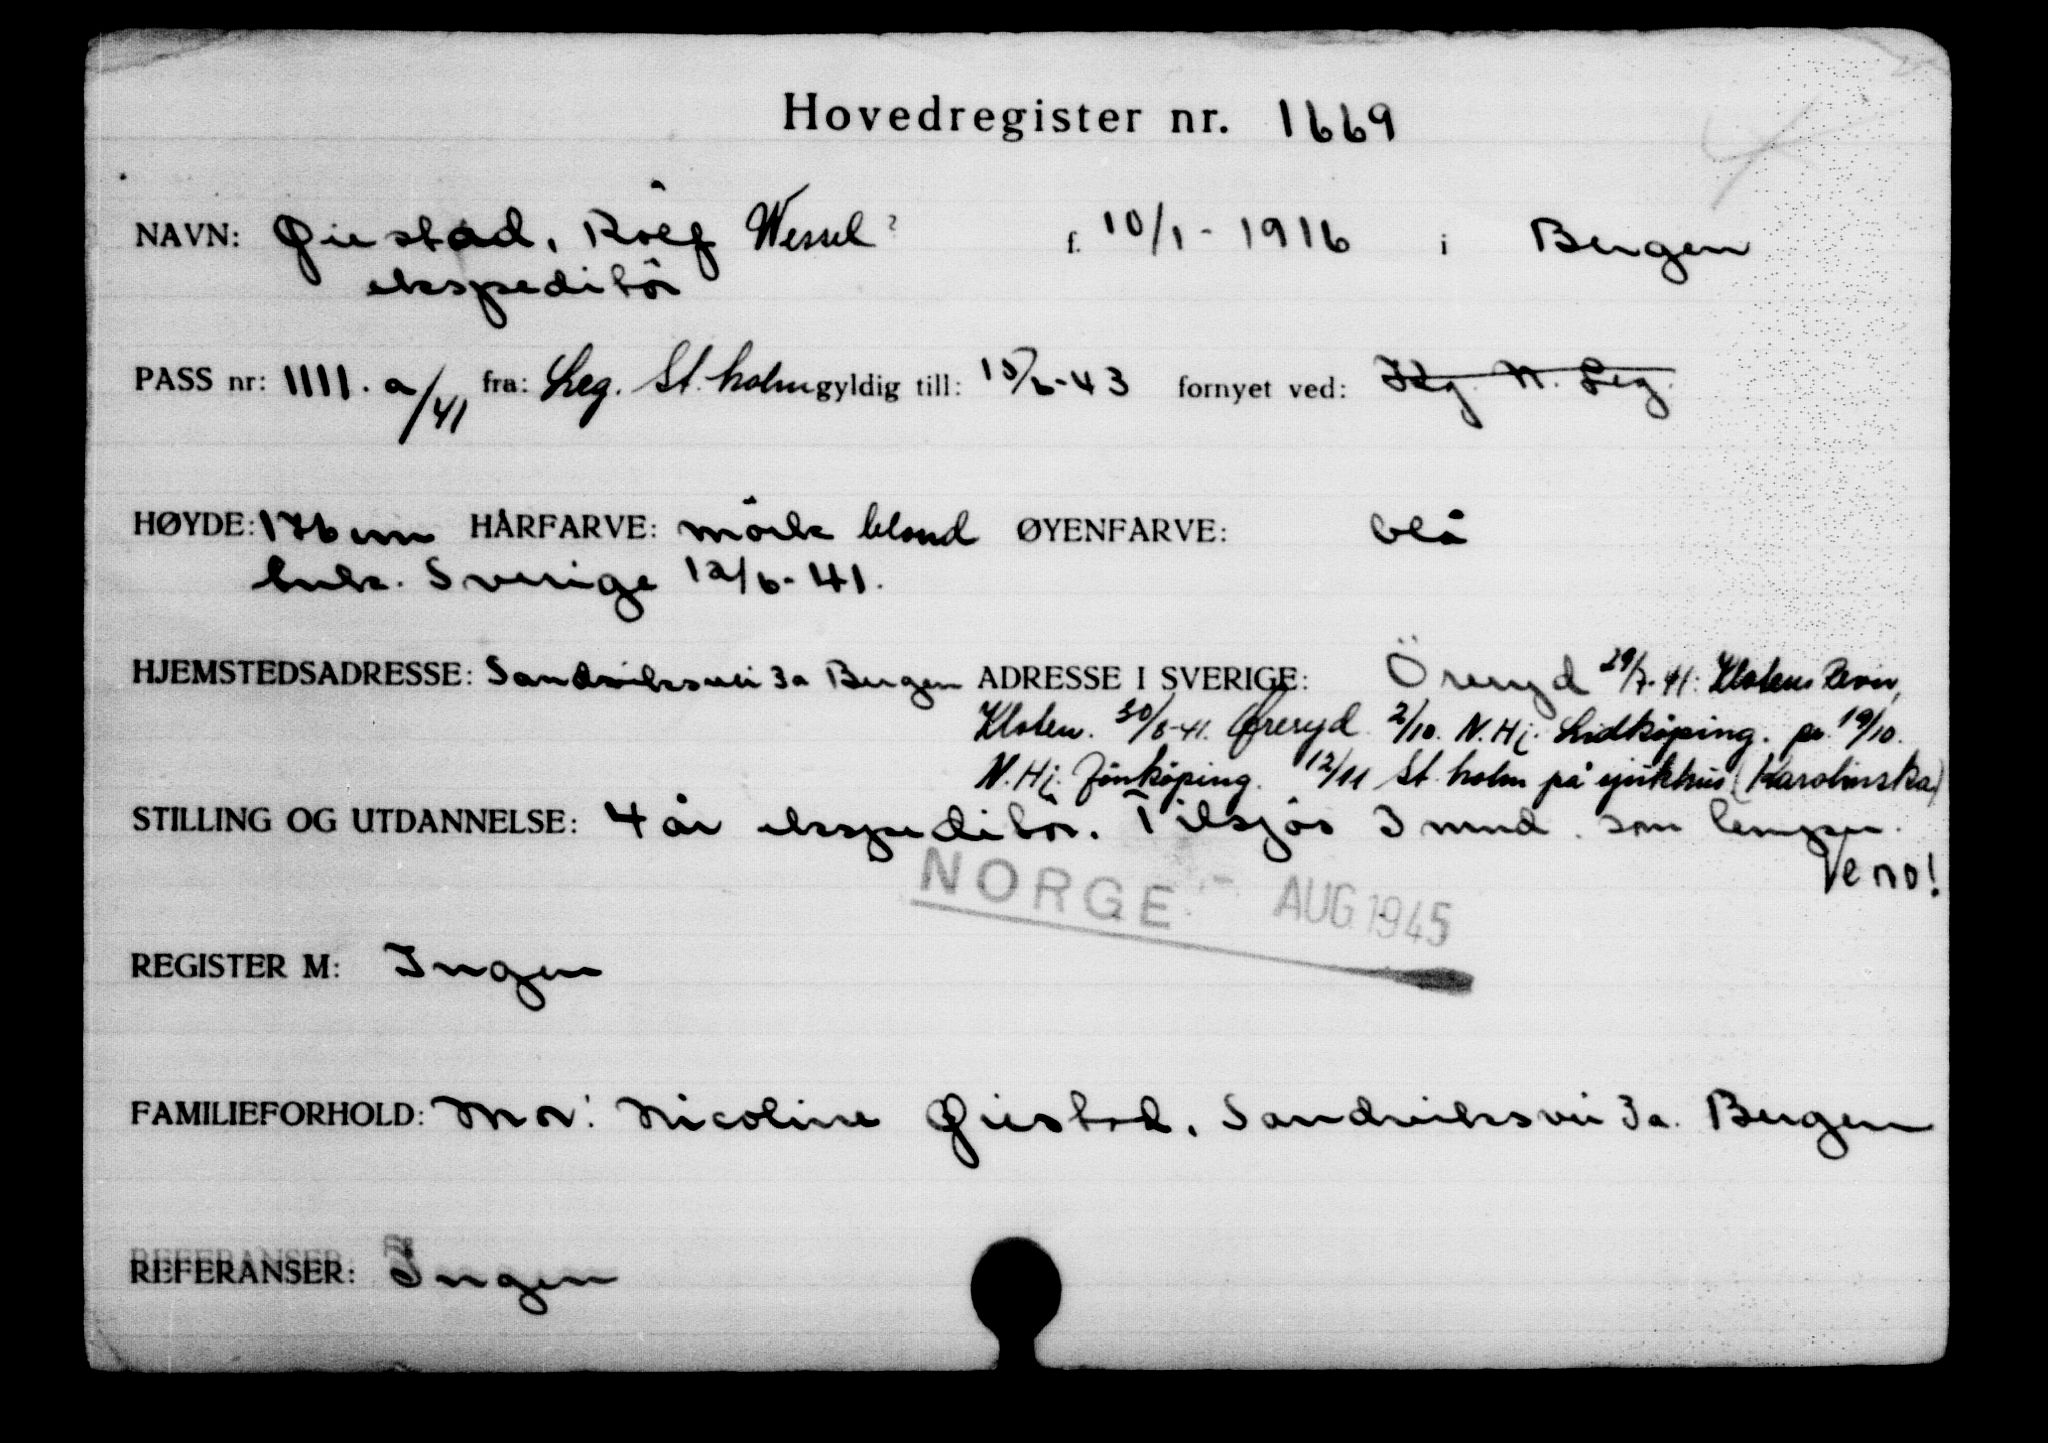 Hovedregister nr. 1669
NAVN: Øiestad, Rolf Wessel? f. 10/1-1916 i Bergen
ekspeditör
PASS nr: 1111.a/41 fra: Leg. St.holm gyldig till: 15/6-43 fornyet ved: Kg. N. Leg.
HØYDE: 176 cm HÅRFARVE: mörk blond ØYENFARVE: blå
Ank. Sverige 12/6-41.
HJEMSTEDSADRESSE: Sandviksvei 3a Bergen ADRESSE I SVERIGE: Öreryd 29/7-41: Klotens Revir,
Kloten. 30/8-41. Öreryd 2/10. N.Hj. Lidköping. pr. 19/10.
N.Hj. Jönköping. 12/11 St.holm på sjukhus (Karolinska)
STILLING OG UTDANNELSE: 4 år ekspeditör. Tilsjös 3 mnd. som lemper.
Ve no!
NORGE - AUG 1945
REGISTER M: Ingen
FAMILIEFORHOLD: Mor: Nicoline Øiestad, Sandviksvei 3a. Bergen
REFERANSER: Ingen